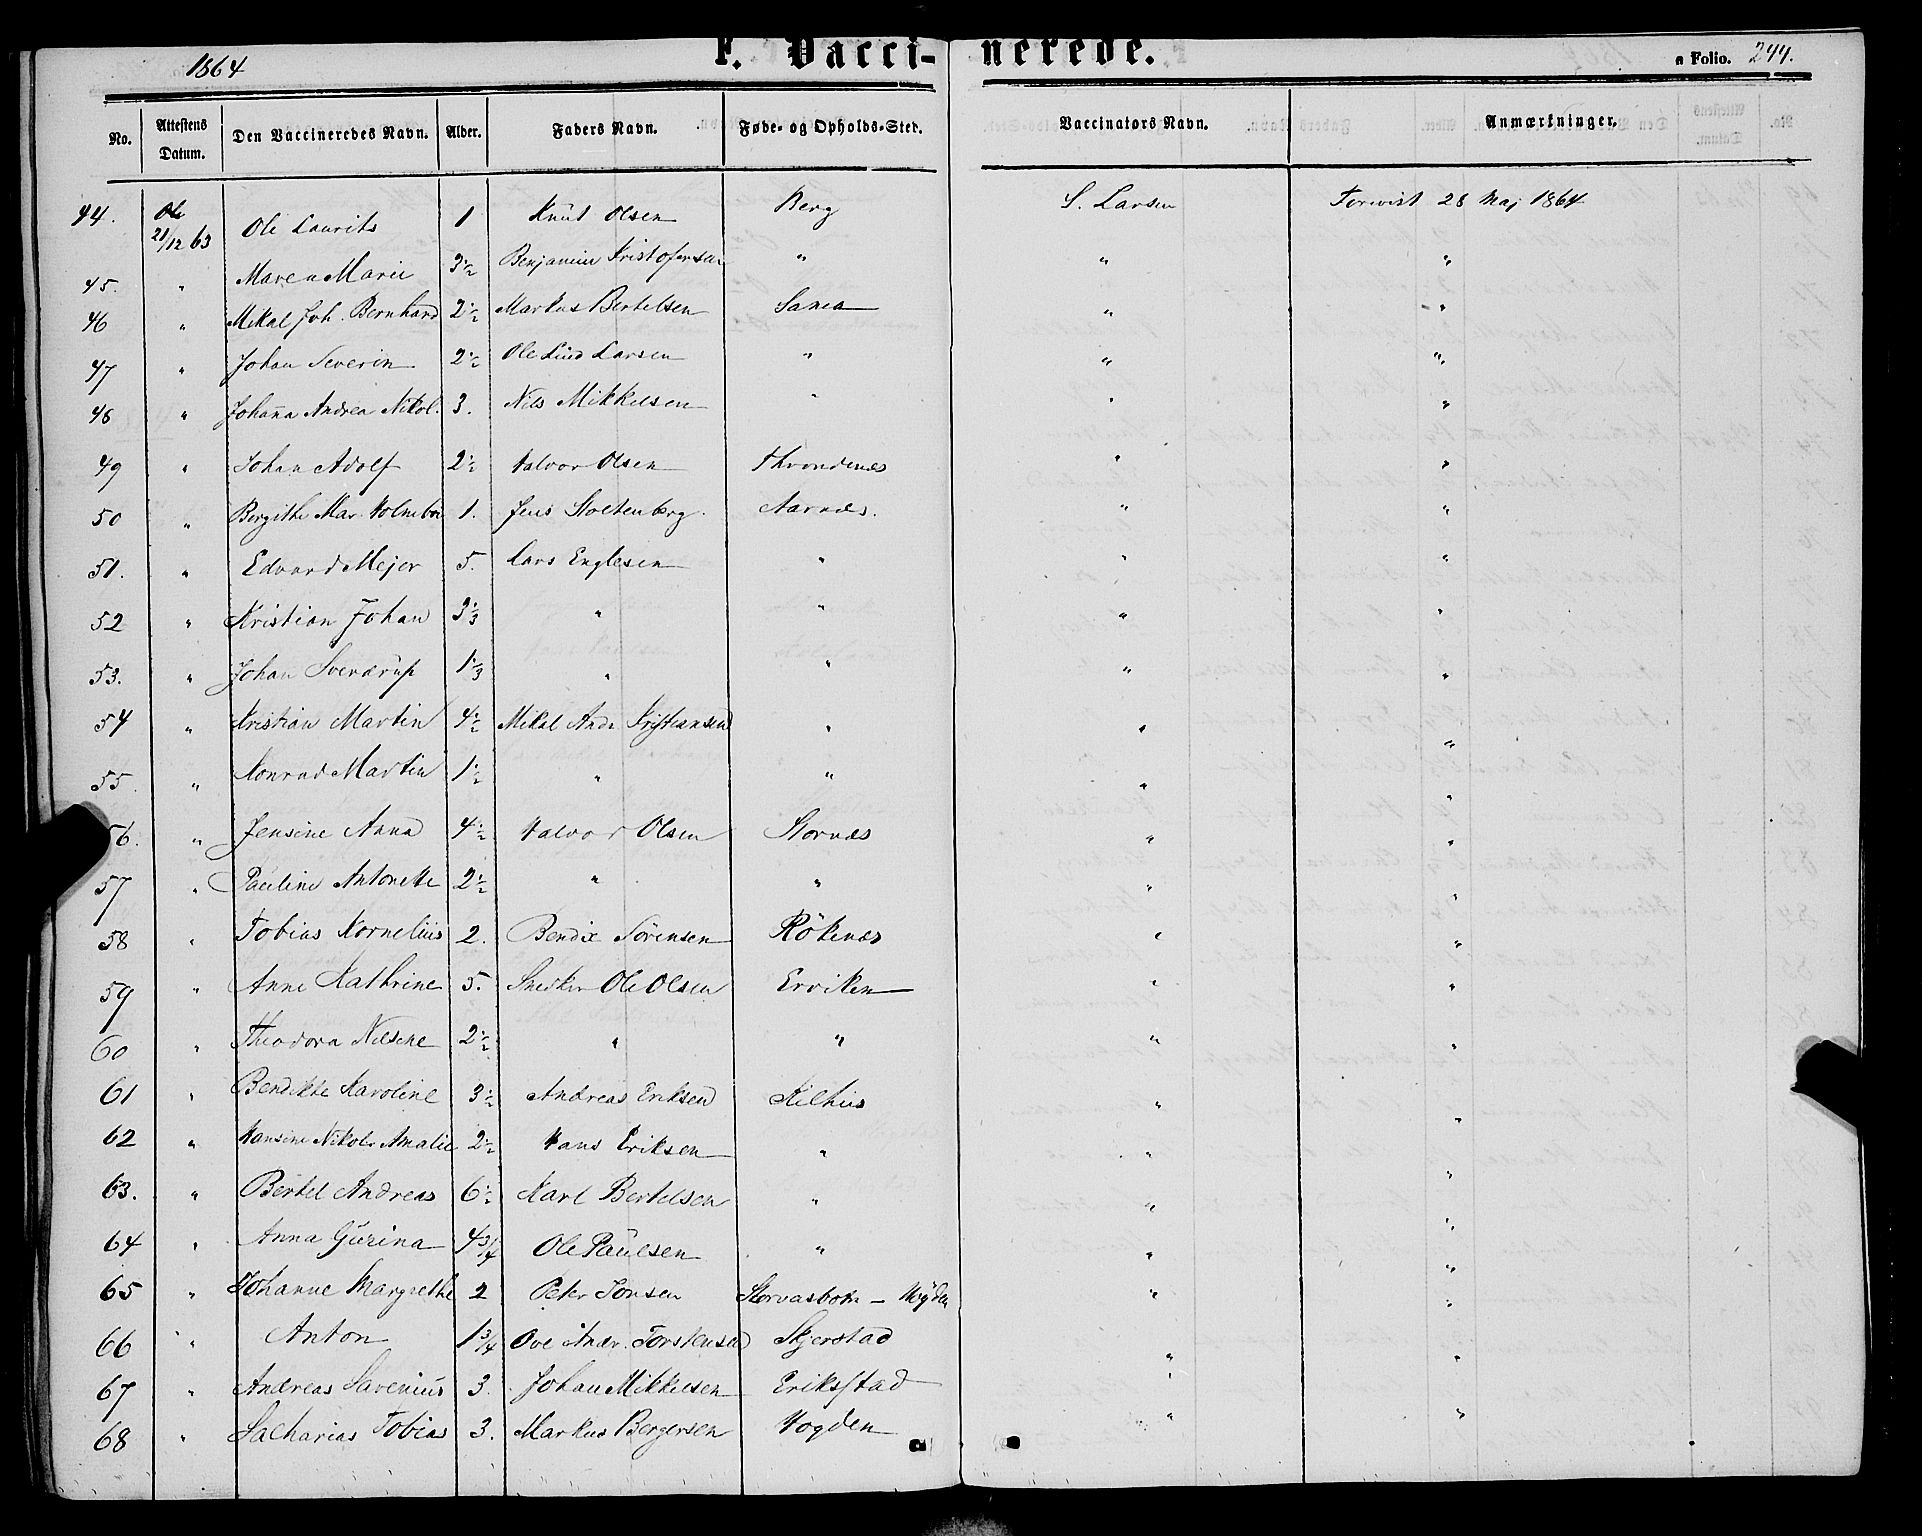 1864 F. Vaccinerede. a Folio. 244.
No. Attestens Datum. Den Vaccineredes Navn. Alder. Faders Navn. Føde- og Opholds-Sted. Vaccinators Navn. Anmærkninger.
44. 21/12 63 Ole Laurits 1 Knut Olsen Berg S. Larsen Forevist 28 Maj 1864
45. " Maren Marie 3½ Benjamin Kristofersen " " "
46 " Mikal Joh. Bernhard 2½ Markus Bertelsen Sama " "
47 " Johan Severin 2½ Ole Lind Larsen " " "
48 " Johanna Andrea Nikol. 3. Nils Mikkelsen " " "
49 " Johan Adolf 2½ Halvor Olsen Throndenæs " "
50 " Bergithe Mar. Holmboe 1. Jens Stoltenberg. Aarnæs. " "
51. " Edvard Mejer 5. Lars Englesen " " "
52 " Kristian Johan 3⅓ " " " "
53. " Johan Sverdrup 1⅓ " " " "
54 " Kristian Martin 4½ Mikal Andr Kristiansen " " "
55. " Konrad Martin 1½ " " " "
56. " Jensine Anna 4½ Halvor Olsen Stornæs " "
57 " Pauline Antonette 2½ " " " "
58 " Tobias Kornelius 2. Bendix Sörensen Rökenæs " "
59 " Anne Kathrine 5. Snedker Ole Olsen Erviken " "
60 " Theodora Nilsine 2½ " " " "
61 " Bendikte Karoline 3½ Andreas Eriksen Kilhus " "
62 " Hansine Nikol. Amalie 2½ Hans Eriksen " " "
63. " Bertel Andreas 6½ Karl Bertelsen " " "
64 " Anna Gurina 4¾ Ole Paulsen " " "
65 " Johanne Margrethe 2 Peter Jonsen Storvasbotn - " "
66 " Anton 1¾ Ove Andr. Torstensen Skjerstad " "
67 " Andreas Savenius 3. Johan Mikkelsen Erikstad " "
68 " Sacharias Tobias 3. Markus Bergersen Vogden " "